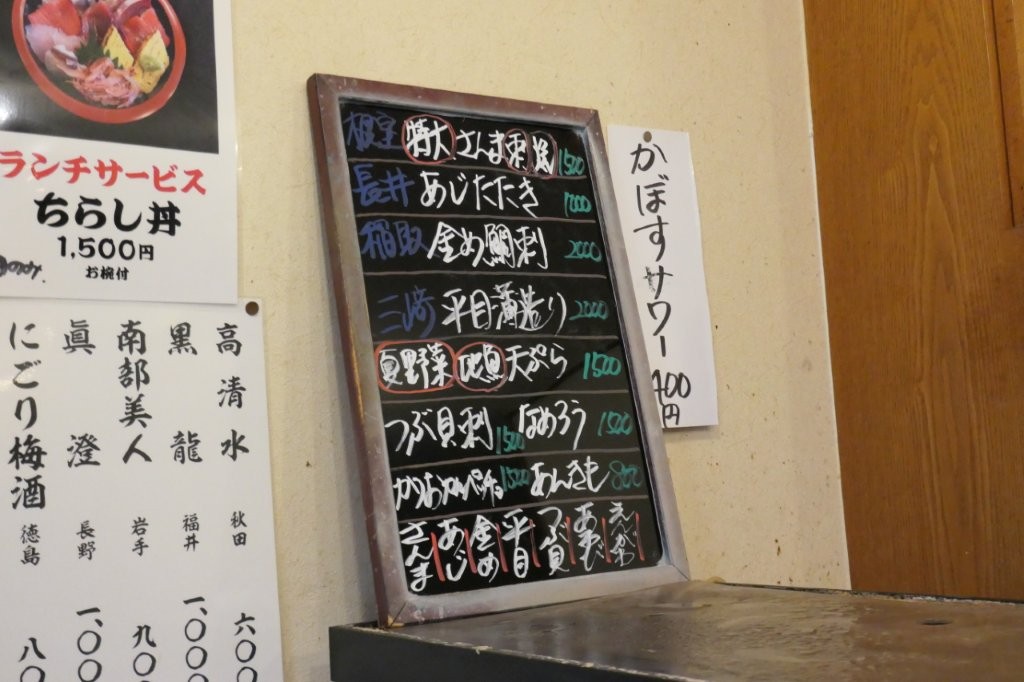 ランチサービス
ちらし丼
1,500円
お椀付
のみ.
高清水 秋田 六〇〇
黒龍 福井 一、〇〇〇
南部美人 岩手 九〇〇
眞澄 長野 一、〇〇
にごり梅酒 徳島 八〇
根室 特大 さんま刺 1500
長井 あじたたき 1000
稲取 金め鯛刺 2000
三崎 平目薄造り 2000
夏野菜 地魚 天ぷら 1500
つぶ貝刺 1500 なめろう 1500
かつおカルパッチョ 1500 あんきも 800
さんま
あじ
金め
平目
つぶ貝
あわび
えんがわ
かぼすサワー 400円